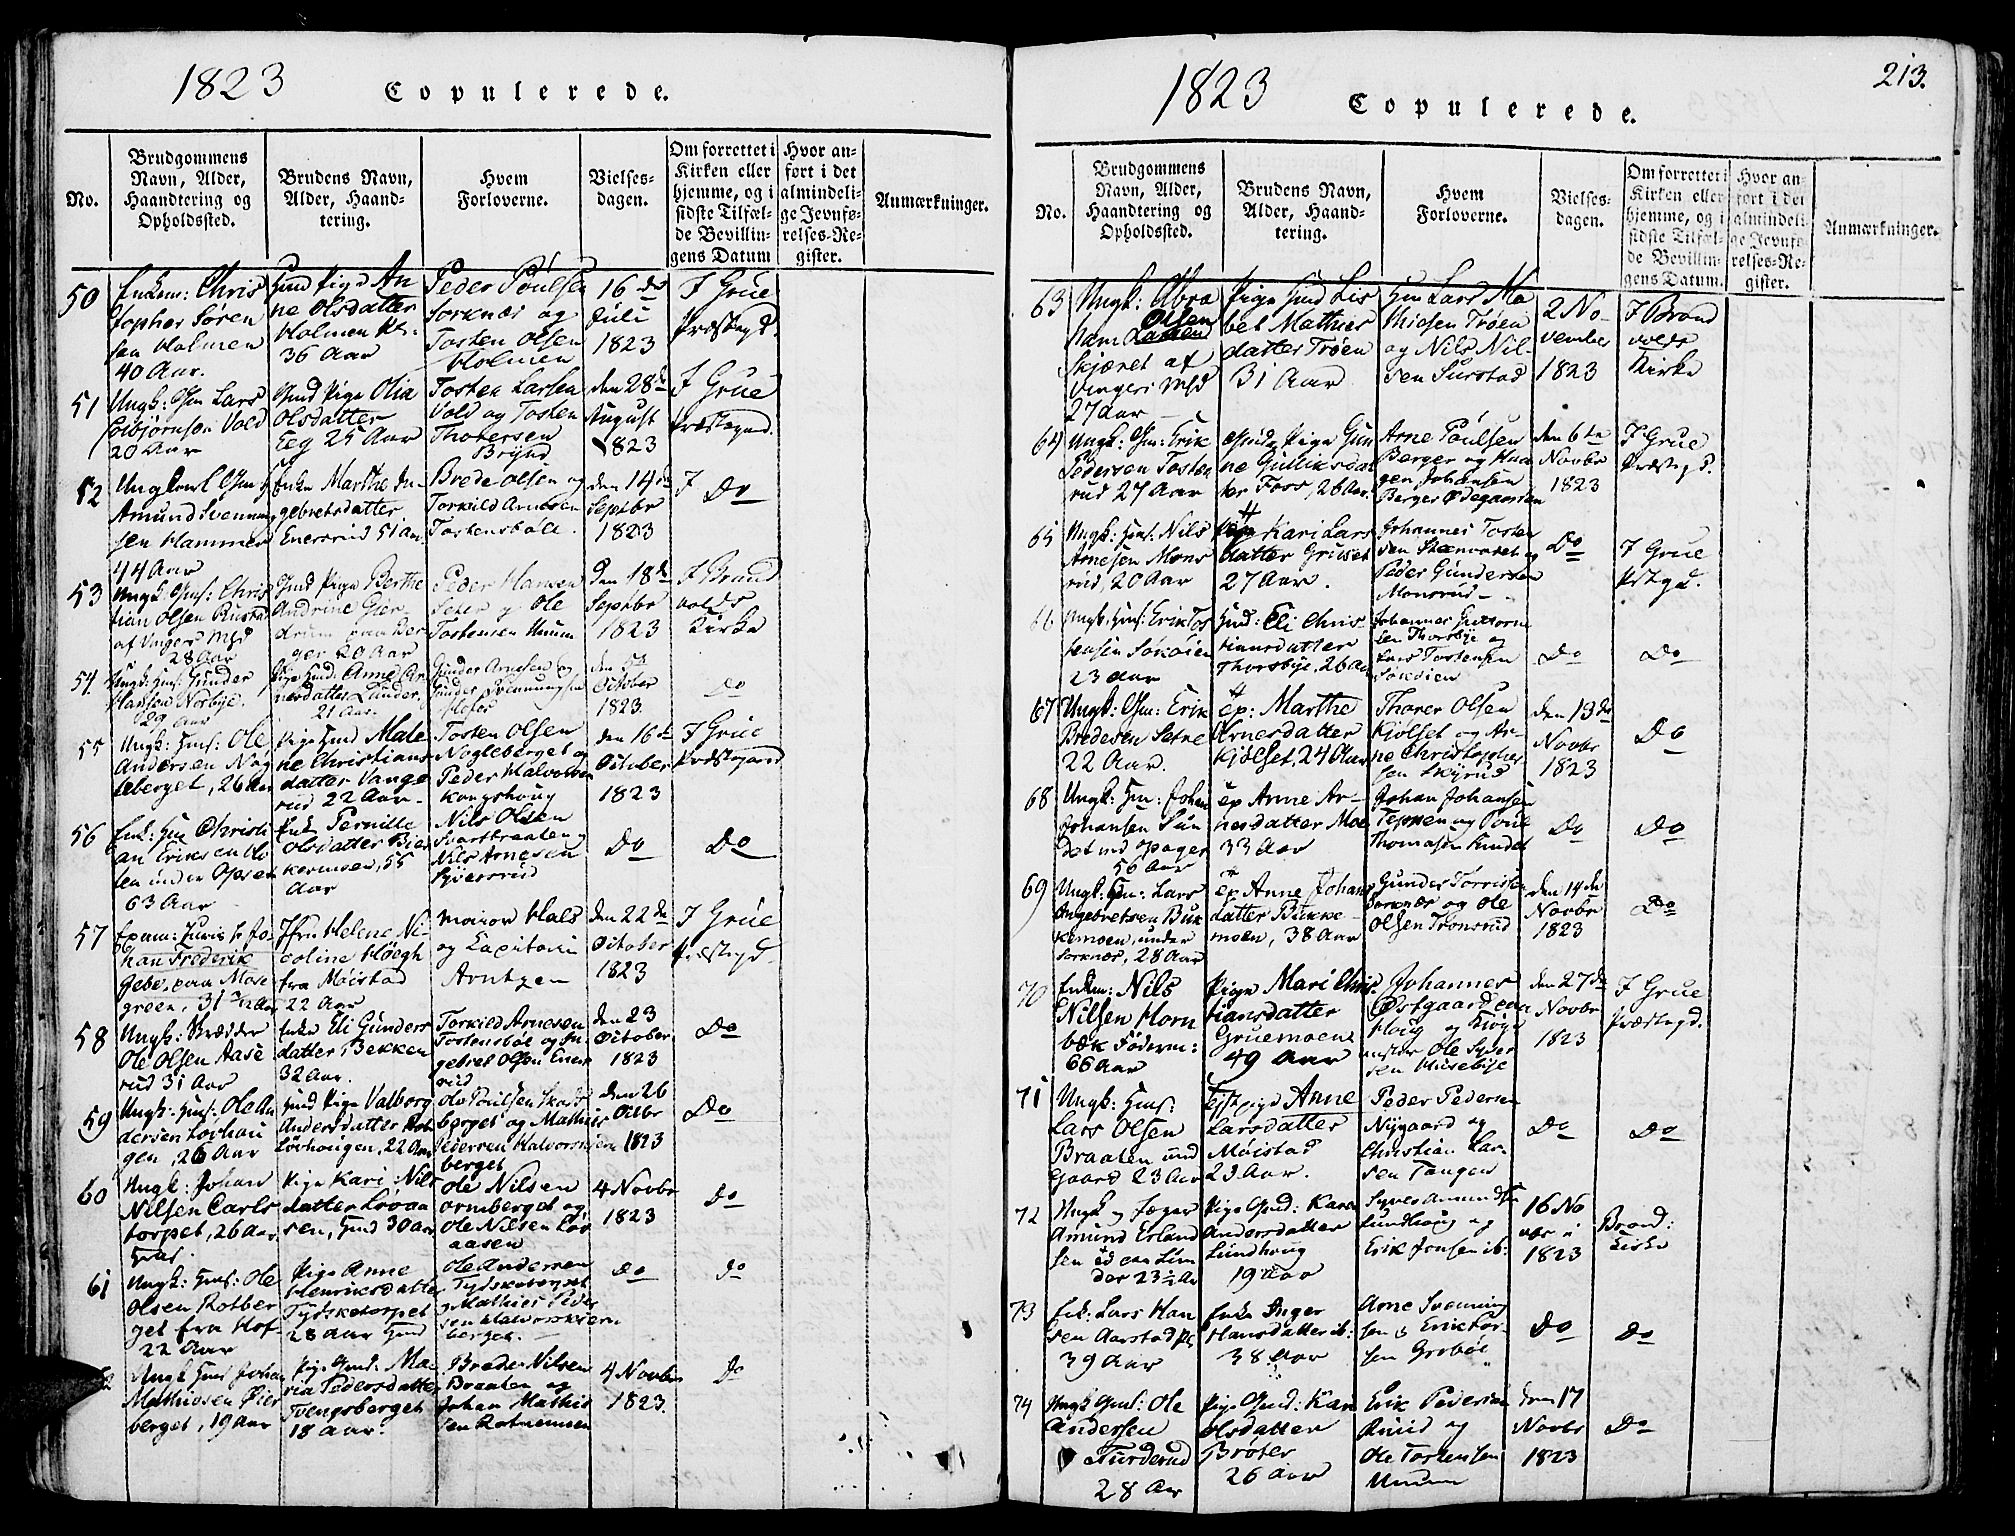 1823 Copulerede.
No.
Brudgommens Navn, Alder, Haandtering og Opholdssted.
Brudens Navn, Alder, Haandtering.
Hvem Forloverne.
Vielsesdagen.
Om forrettet i Kirken eller hjemme, og i sidste Tilfælde Bevillingens Datum
Hvor anført i det almindelige Jevnførelses-Register.
Anmærkninger.
50
Enkem: Chris
topher Søren
sen Holmen
40 Aar.
Gmd Pige An
ne Olsdatter
Holmen
36 Aar
Peder Poulsen
Sorknæs og
Tosten Olsen
Holmen
16 do
Juli
1823
I Grue
Præstegd.
51
Ungk: Gsn Lars
Esbjørnsøn Vold
20 Aar
Gmd Pige Olia
Olsdatter
Eeg 25 Aar
Tosten Larsen
Vold og Tosten
Thoresen
Brynd
den 28de
August
1823
I Grue
Præstegaard.
52
Amund Svenning
sen Hammer
44 Aar
Enke Marthe In
gebretsdatter
Enersrud 51 Aar.
Brede Olsen og
Torkild Arnesen
Tostensbøle.
den 14de
Septbr
1823
I Do
53
Ungk: Gmf: Chris
tian Olsen Rustad
af Vinger Mgld
28 Aar
Gmd Pige Berthe
Andrine Gier
drum paa Ber
ger 20 Aar
Peder Hansen
Seter og Ole
Tostensen Huum
Den 18de
Septbr
1823
I Brand
volds
Kirke
54
Ungk: Hmf: Gunder
Hansen Norbye.
29 Aar
Pige Hmd: Anne Ar
nesdatter Lunder,
21 Aar
Gunder Arnesen og
Gunder Svenningsen
den 5te
October
1823.
Do
55
Ungk: Hmf: Ole
Andersen Nog
leberget, 26 Aar
Pige Hmd Male
ne Christians
datter Vange
rud 22 Aar
Tosten Olsen
Nogleberget og
Peder Halvorsen
Kongshoug
den 16de
October
1823
I Grue
Præstegaard
56
Enk: Hm Christi
an Eriksen
63 Aar
Enke Pernille
Olsdatter Bier
kermoen, 55
Aar
Nils Olsen
Svartbraaten og
Nils Arnesen
Do
Do
57
Exam: Juris Hr Jo
han Frederik
Gebe, paa More
green, 31 Aar
Jfru Helene Ni
coline Høegh
fra Møistad
22 Aar
Maior Hals
og Capitain
Arntzen
den 22de
October
1823
I Grue
Præstegd.
58
Ungk: Skrædder
Ole Olsen Aase
rud 31 Aar
Enke Eli Gunders
datter, Bekken
32 Aar.
Torkild Arnesen
Tostensbøl og In
gebret Olsen Eners
rud
den 23
October
1823
Do
59
Ungk: Hmf: Ole An
dersen Lövhau
gen, 26 Aar
Hmd Pige Valborg
Andersdatter
Lövhougen, 22 Aar
Ole Poulsen Skads
berget og Mathis
Pedersen Halvorsien
berget
den 26
Octbr
1823
Do
60
Ungk: Johan
Nilsen Carls
torpet, 26 Aar
Hmf.
Pige Kari Nils
datter Lövaa
sen, Hmd 30 Aar
Ole Nilsen
ormberget og
Ole Nilsen Löv
aasen
4 Novbr
1823
Do
61
Ungk: Hmf: Ole
Olsen Rotber
get fra Hof
22 Aar
Pige Anne
Henriksdatter
Tydsketorpet
28 Aar Hmd
Ole Andersen
Tydsketorpet
og Mathies Peder
sen Halvorsien
berget.
Do
Do
Ungk Hmf Johan
Mathisen Öier
berget, 19 Aar
Pige Gmd: Ma
ria Pedersdatter
Tvengsberget
18 Aar.
Brede Nilsen
Braaten og
Johan Mathis
sen Rotmennen
4 Novbr
1823.
Do
1823 Copulerede. 213.
No.
Brudgommens Navn, Alder, Haandtering og Opholdssted.
Brudens Navn, Alder, Haandtering.
Hvem Forloverne.
Vielsesdagen.
Om forrettet i Kirken eller hjemme, og i sidste Tilfælde Bevillingens Datum.
Hvor anført i det almindelige Jevnførelses-Register.
Anmærkninger.
63
Ungk: Abra
ham Olsen
Skjæret af
Vingers Mgld
27 Aar
Pige Hmd Lis
bet Mathies
datter Trøen
31 Aar
Hm Lars Ma
thiesen Trøen
og Nils Nil
sen Surstad
2 No
vember
1823
I Brand
volds
Kirke
64
Ungk: Gsn: Erik
Pedersen Tosten
rud 27 Aar
Gmd Pige Gun
ne Gulliksdat
ter Foss, 26 Aar.
Arne Poulsen
Berger og Haa
gen Johansen
Berger Ødegaarden
den 6te
Novbr
1823
I Grue
Præstegd.
65
Ungk: Hmf. Nils
Arnesen Mons
rud, 20 Aar
Pige Kari Lars
datter Grueset
27 Aar.
Johannes Tosten
sen Skærvaset og
Peder Gundersen
Monsrud
Do
I Grue
Pstgd.
66
Ungk: Hmf: Erik Tos
tensen Søköien
23 Aar
Hmd: Eli Chris
tiansdatter
Thorsbye, 26 Aar
Johannes Guttorm
sen Thorsbye og
Lars Tostensen
Søköien
Do
Do
67
Ungk: Gsn: Erik
Bredesen Sætre
22 Aar.
ep: Marthe
Arnesdatter
Kjölset, 24 Aar
Thorer Olsen
Kiölset og Ar
ne Christopher
sen Skyrud
den 13de
Novbr
1823
Do
68
Ungk: Hm: Johan
Johansen Sun
det und Opager
56 Aar
ep Anne Ar
nesdatter Moe
33 Aar
Johan Johansen
Teppen og Poul
Thomasen Sundet
Do
Do
69
Ungk: Hm: Lars
Angebretsen Buk
kemoen, under
Sorknær, 28 Aar
ep Anne Johans
datter Bukke
moen, 38 Aar
Gunder Torrisen
Sorknær og Ole
Olsen Tronsrud
den 14de
Novbr
1823
Do
70
Enkem: Nils
Nilsen Horn
bæk Föderm:
66 Aar
Pige Mari Chris
tiansdatter
Gruemoen
49 Aar
Johannes
Østgaard paa
Houg og
Ole Syver
sen Husebye
den 27de
Novbr
1823
I Grue
Præstegd.
71
Ungk: Hmf:
Lars Olsen
Braaten und
Gaard 23 Aar
Pige Anne
Larsdatter
Möistad
23 Aar.
Peder Pedersen
Nygaard og
Christian Lar
sen Tangen
Do
Do
72
Ungk og Jæger
Amund Erland
sen
der 23½ Aar
Pige Gmd: Kari
Andersdatter
Lundhoug
19 Aar
Syver Amundsen
Lundhoug og
Erik Jensen ib:
16 No
vbr
1823
Brand:
Kirke
73
Enk: Lars Han
sen Aarstad Pl
39 Aar
Enke Inger
Hansdatter ib:
38 Aar
Arne Svenning
sen & Erik
sen Grobøl
Do
Do
74
Ungk Gmf: Ole
Andersen
Turderud
28 Aar
Pige Gmd: Kari
Olsdatter
Broter
26 Aar
Erik Pedersen
Ruud og
Ole Tostensen
den 17
Novbr
1823
Do